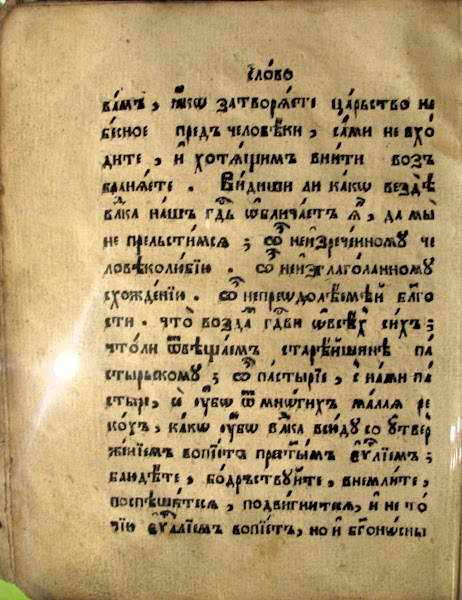 сло́во
ва́мъ , ꙗ҆́кѡ затворѧ́ете ца́рьство не
бе́сное предъ человѣ́ки , са́ми не вхо́
дите , и҆ хотѧ́щимъ вни́ти возъ
бранѧ́ете . Ви́диши ли ка́кѡ вездѣ̀
влⷣка на́шъ гдⷭ҇ь ѡ҆блича́етъ ꙗ҆̀ , да мы̀
не прельсти́мсѧ ; ѽ неи҆зрече́нному че
ловѣколю́бїю . ѽ неи҆зглаго́ланному
схожде́нїю . ѽ непреѡдолѣ́емѣй бл҃го
сти . что̀ возда́ гдⷭ҇ви ѡ҆всѣ́хъ си́хъ ;
что́ли ѿвѣща́емъ старѣ́йшинѣ па́
стырьскому ; ѽ па́стырїе , с на́ми па́
стырє , се ᲂу҆̀бѡ ѿ мно́гихъ ма́лаѧ ре
ко́хъ , ка́кѡ ᲂу҆̀бѡ влⷣка всю́дꙋ со ᲂу҆тве́р
же́нїемъ вопїе́тъ прест҃ы́мъ є҆ѵⷢ҇лїемъ ;
блюдѣ́те , бо́дрьствꙋйте , вне́млите ,
поспѣши́тесѧ , подви́гнитесѧ , и҆ не то́
чїю є҆ѵⷢ҇лїемъ вопїе́тъ , но и҆ бг҃оно́сны